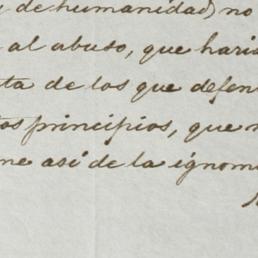 de humanidad) no
al abuso, que haria
ta de los que defen
os principios, que
me así de la ignomi